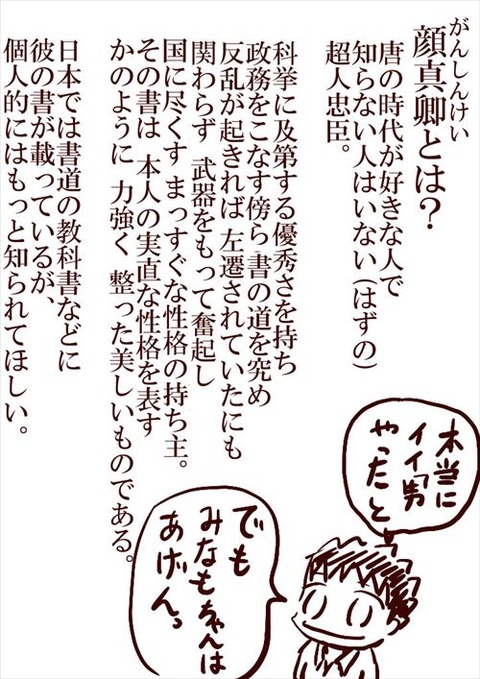 がんしんけい
顔真卿とは？
唐の時代が好きな人で
知らない人はいない（はずの）
超人忠臣。
科挙に及第する優秀さを持ち
政務をこなす傍ら 書の道を究め
反乱が起きれば 左遷されていたにも
関わらず 武器をもって奮起し
国に尽くす まっすぐな性格の持ち主。
その書は 本人の実直な性格を表す
かのように 力強く 整った美しいものである。
日本では書道の教科書などに
彼の書が載っているが、
個人的にはもっと知られてほしい。
本当に
イイ「男
やったと
でも
みなもちゃんは
あげん。